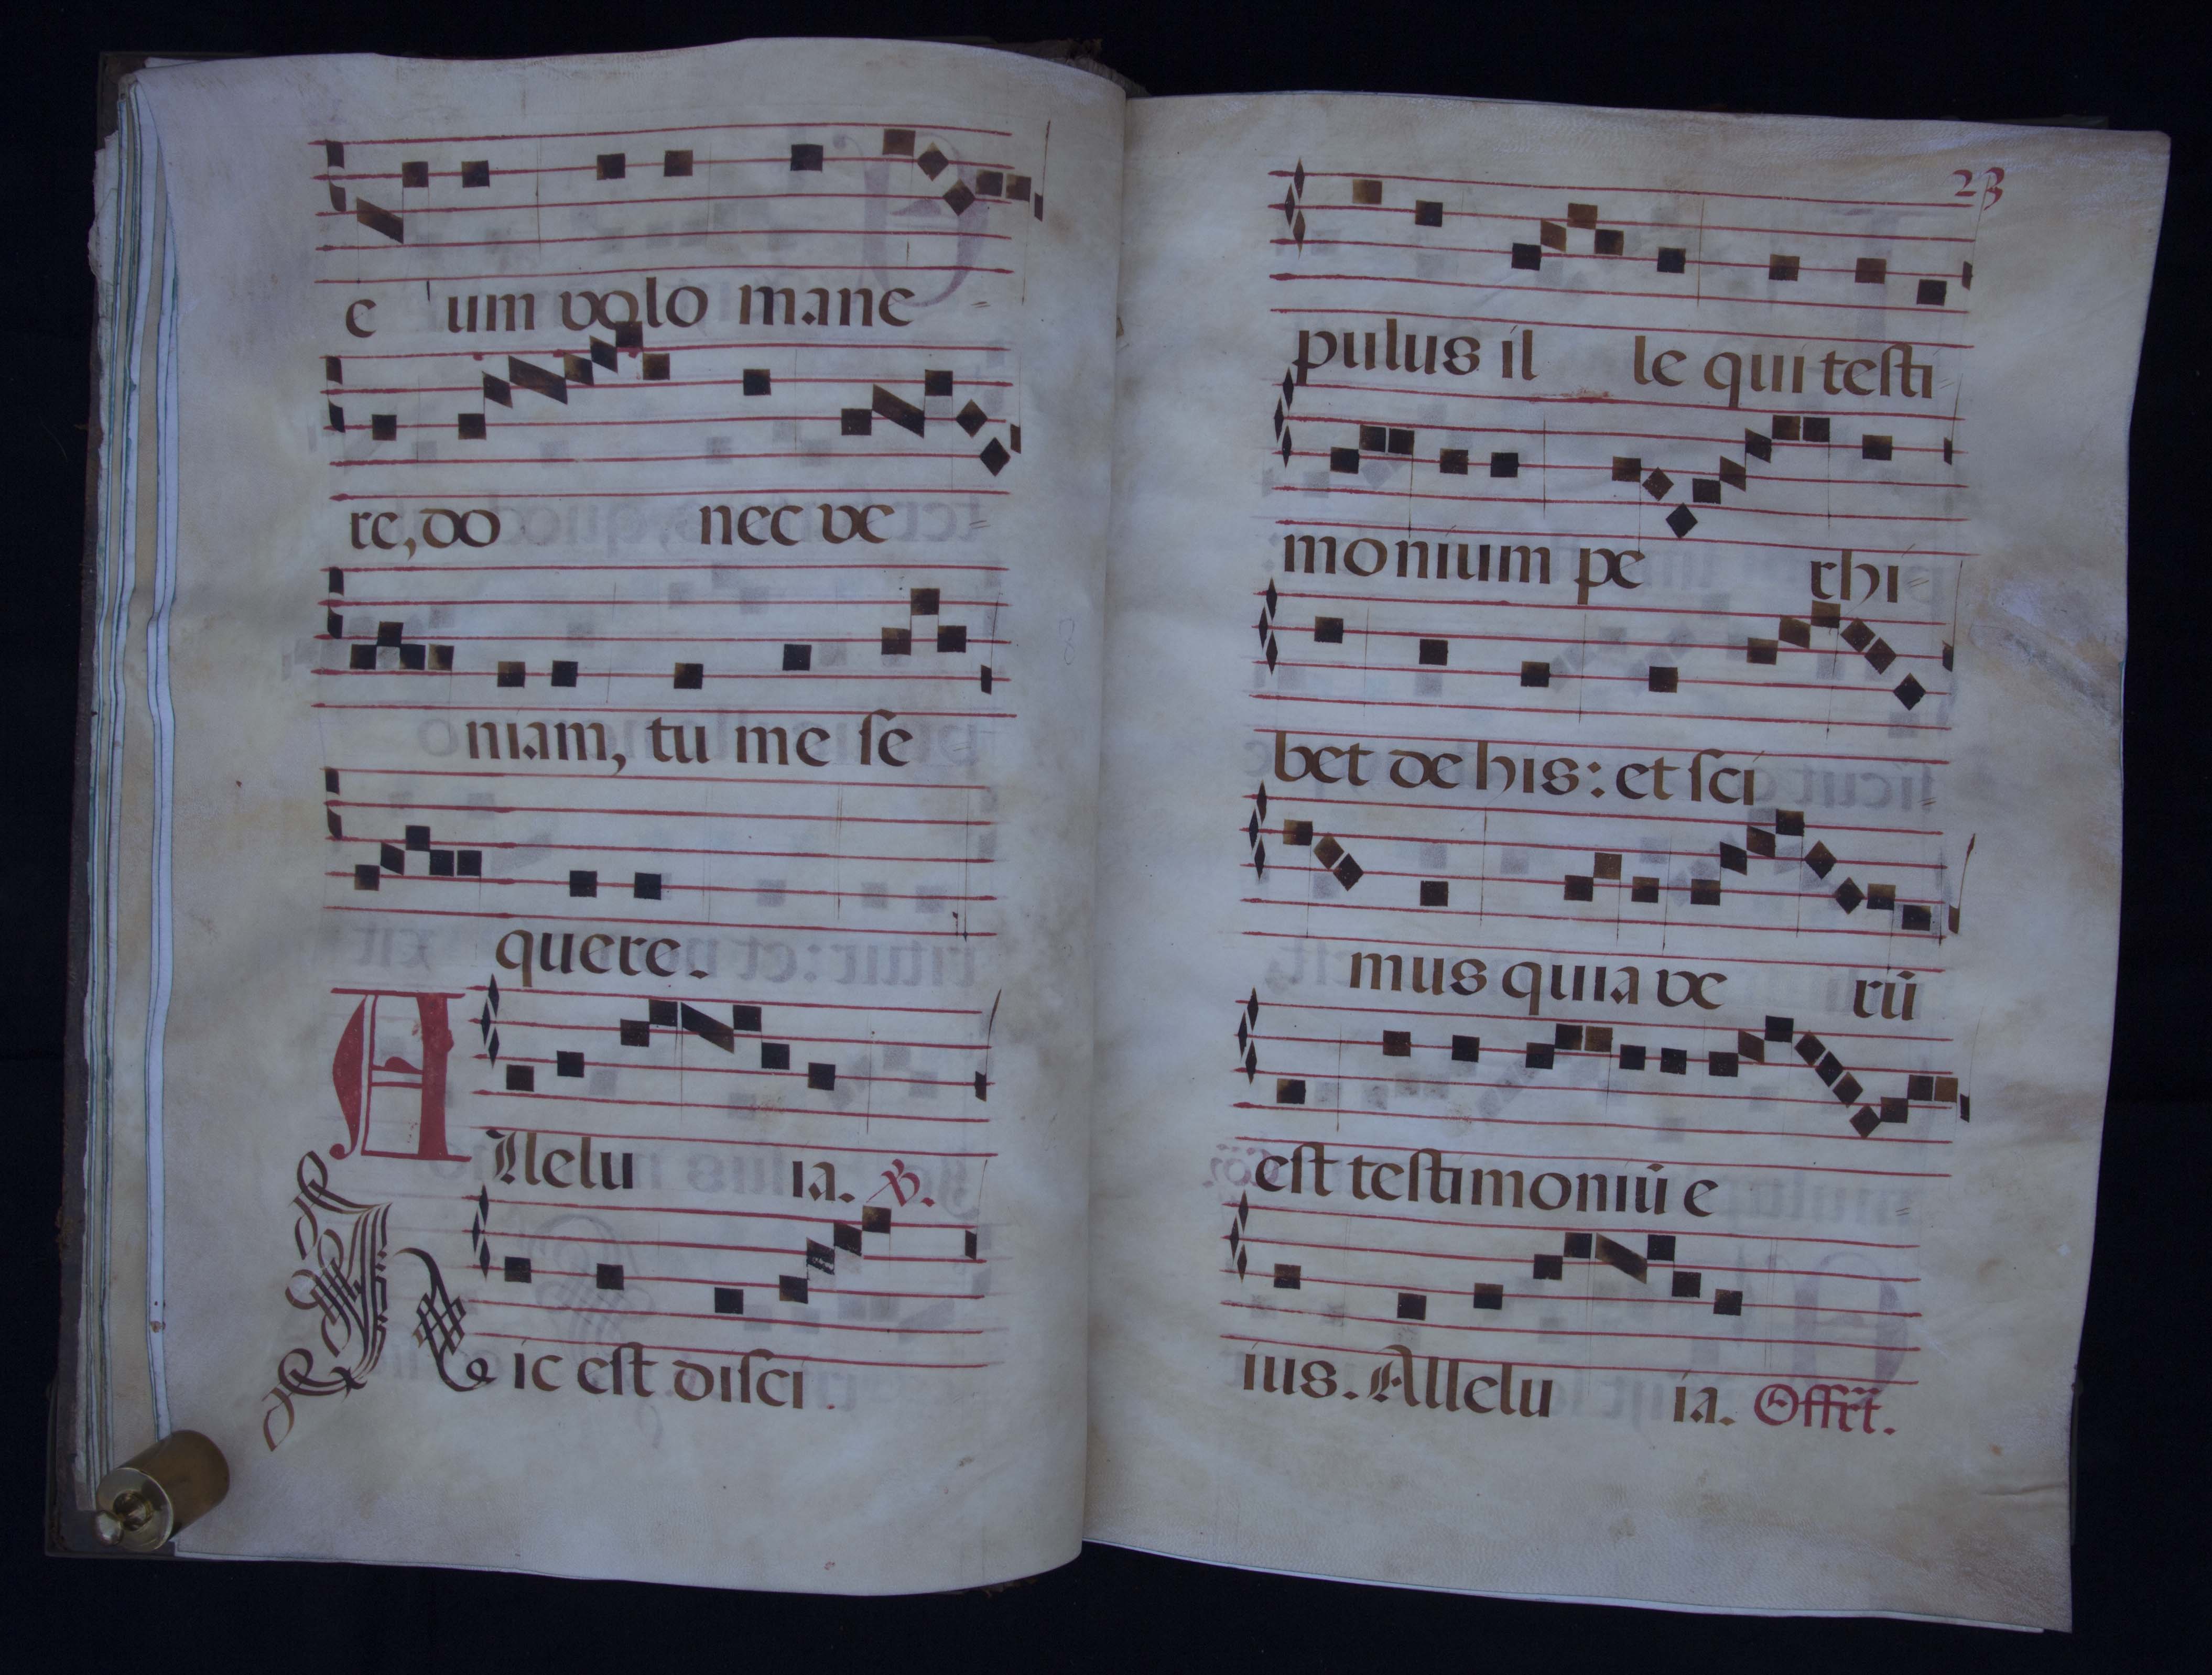 e um volo mane=
re, do nec ve=
niam, tu me se=
quere.
Allelu ia. ℣.
Hic est disci
23
pulus il le qui testi=
monium pe rhi=
bet de his: et sci=
mus quia ve rũ
est testimoniũ e=
ius. Allelu ia. Offrt.